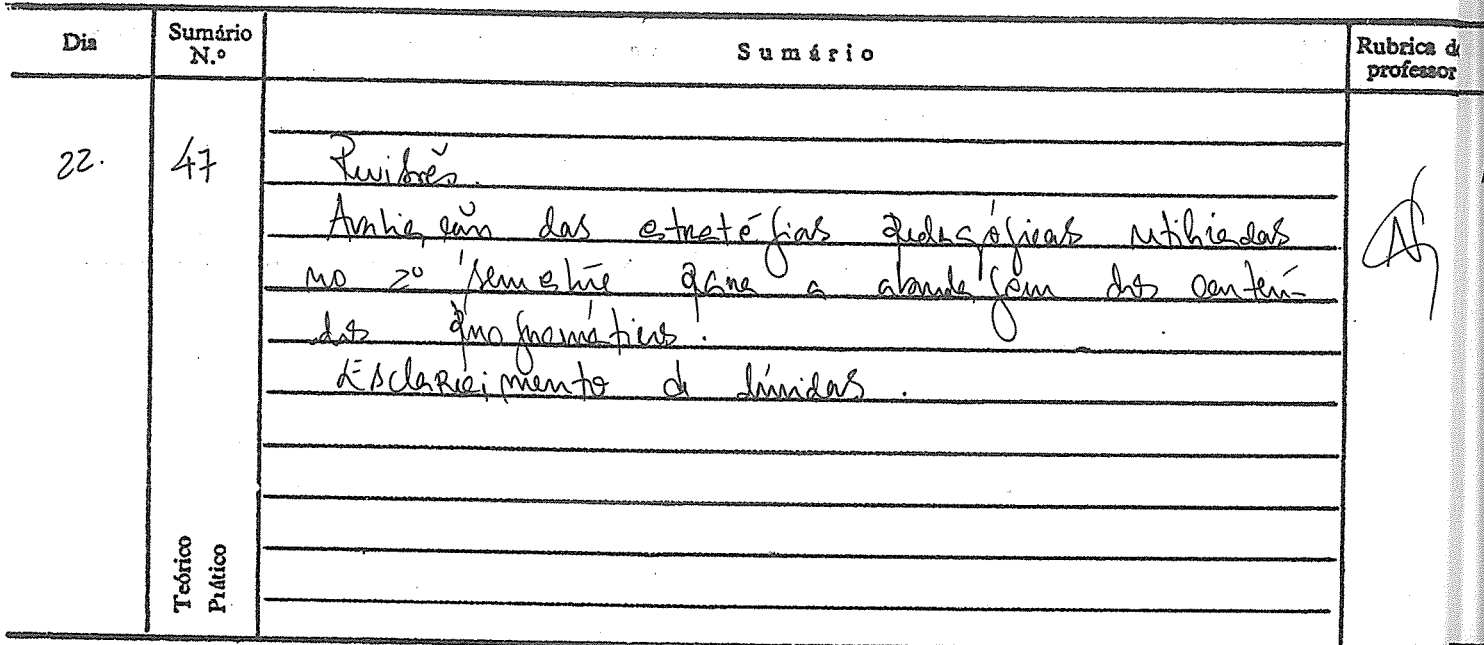 Dia Sumário N.º Sumário Rubrica d professor
22. 47 Revisões.
Avaliação das estratégias pedagógicas utilizadas
no 2º semestre para a abordagem dos conteú-
dos programáticos.
Esclarecimento de dúvidas.
Teórico
Prático